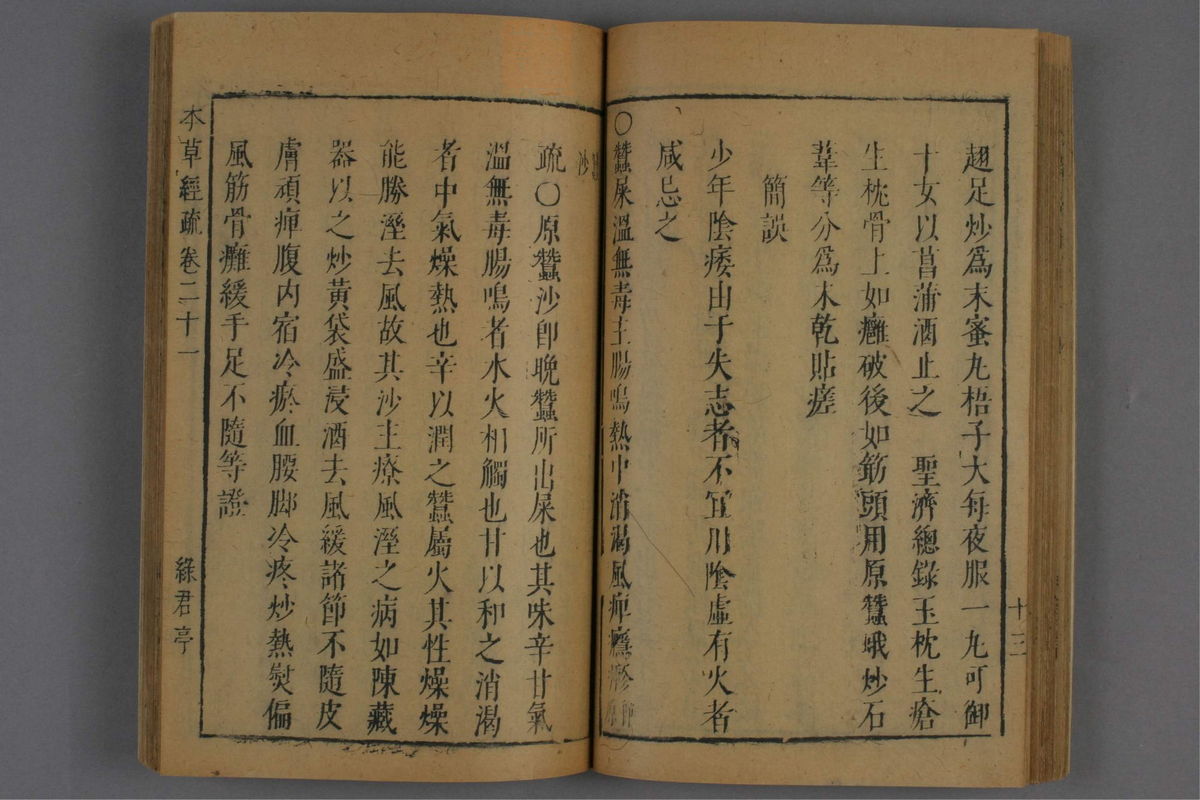 翅足炒爲末蜜丸梧子大每夜服一丸可御
十女以菖蒲酒止之　聖濟總錄玉枕生瘡
生枕骨上如癰破後如筯頭用原蠶蛾炒石
韋等分爲末乾貼瘥
簡誤
少年陰痿由于失志者不宜用陰虛有火者
咸忌之
〇蠶屎溫無毒主腸鳴熱中消渴風痺癮疹
沙
十三
疏〇原蠶沙卽晚蠶所出屎也其味辛甘氣
溫無毒腸鳴者水火相觸也甘以和之消渴
者中氣燥熱也辛以潤之蠶屬火其性燥燥
能勝溼去風故其沙主療風溼之病如陳藏
器以之炒黃袋盛浸酒去風緩諸節不隨皮
膚頑痺腹内宿冷瘀血腰脚冷疼炒熱熨偏
風筋骨癱緩手足不隨等證
本草經疏 卷二十一 綠君亭